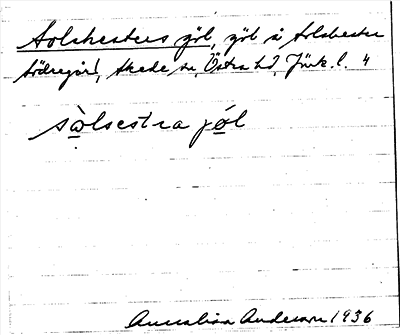 Solshesters göl, göl i Solshester
Södregård, Skede sn, Östra hd, Jönk. l. 4
sòlsestra jøl
Annalisa Anderson 1936